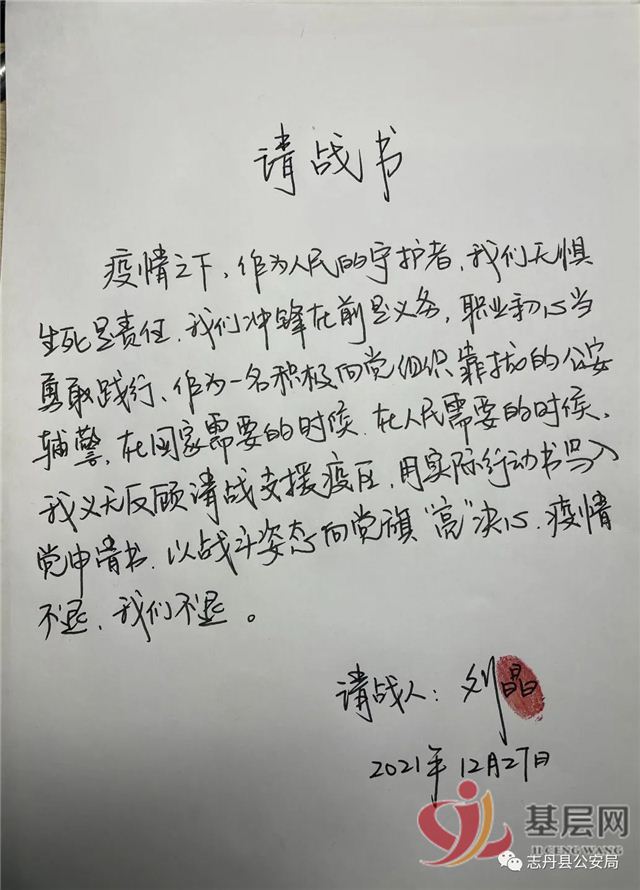 请战书
疫情之下，作为人民的守护者，我们无惧
生死是责任，我们冲锋在前是义务，职业初心当
勇敢践行、作为一名积极向党组织靠拢的公安
辅警，在国家需要的时候，在人民需要的时候，
我义无反顾请战支援疫区，用实际行动书写入
党申请书，以战斗姿态向党旗“亮”决心，疫情
不退，我们不退。
请战人：刘晶
2021年12月27日
基层网
JICENGWANG
志丹县公安局